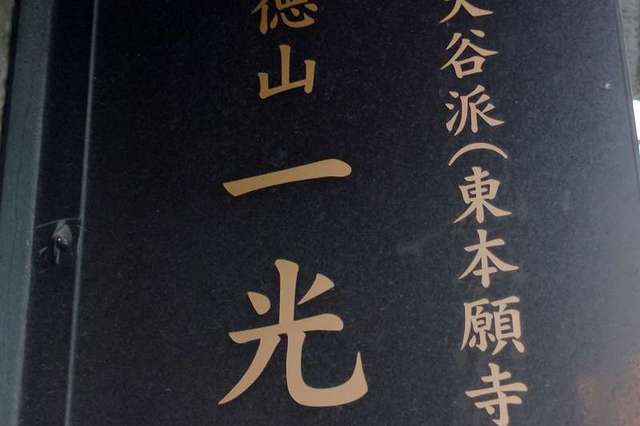 大谷派(東本願寺
徳山
一光